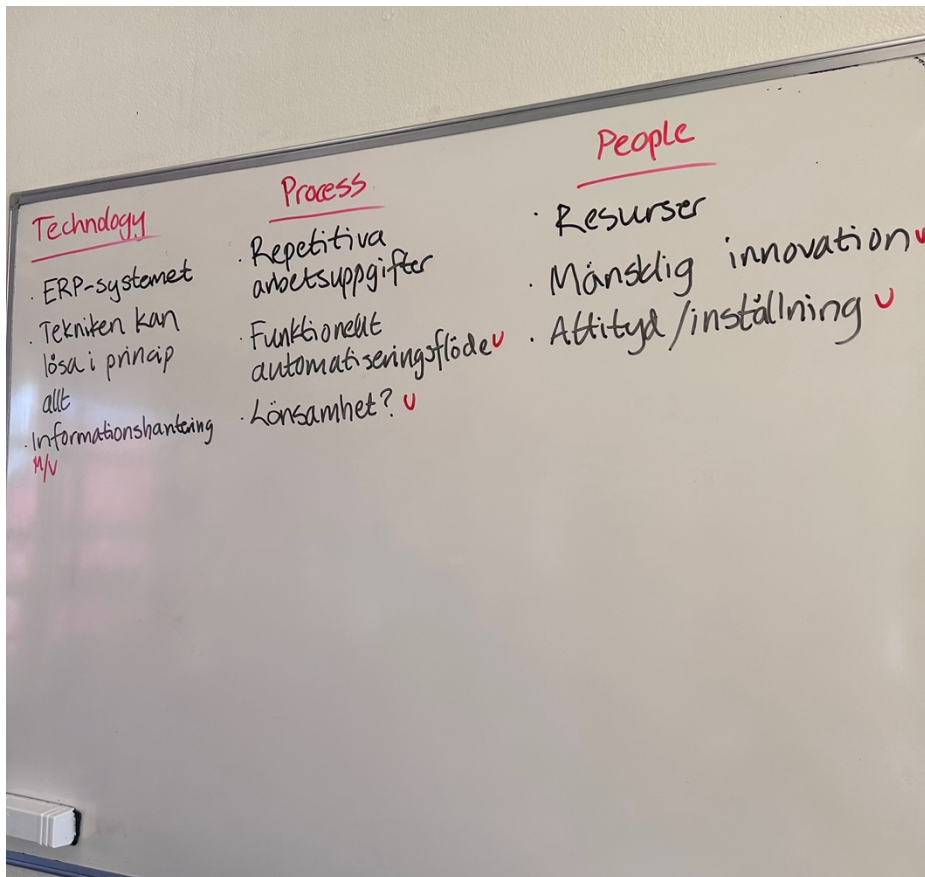 Technology
· ERP-systemet
· Tekniken kan
lösa i princip
allt
· Informationshantering
M/V
Process
· Repetitiva
arbetsuppgifter
· Funktionellt
automatiseringsflöde U
· Lönsamhet? U
People
· Resurser
· Mänsklig innovation U
· Attityd/inställning U